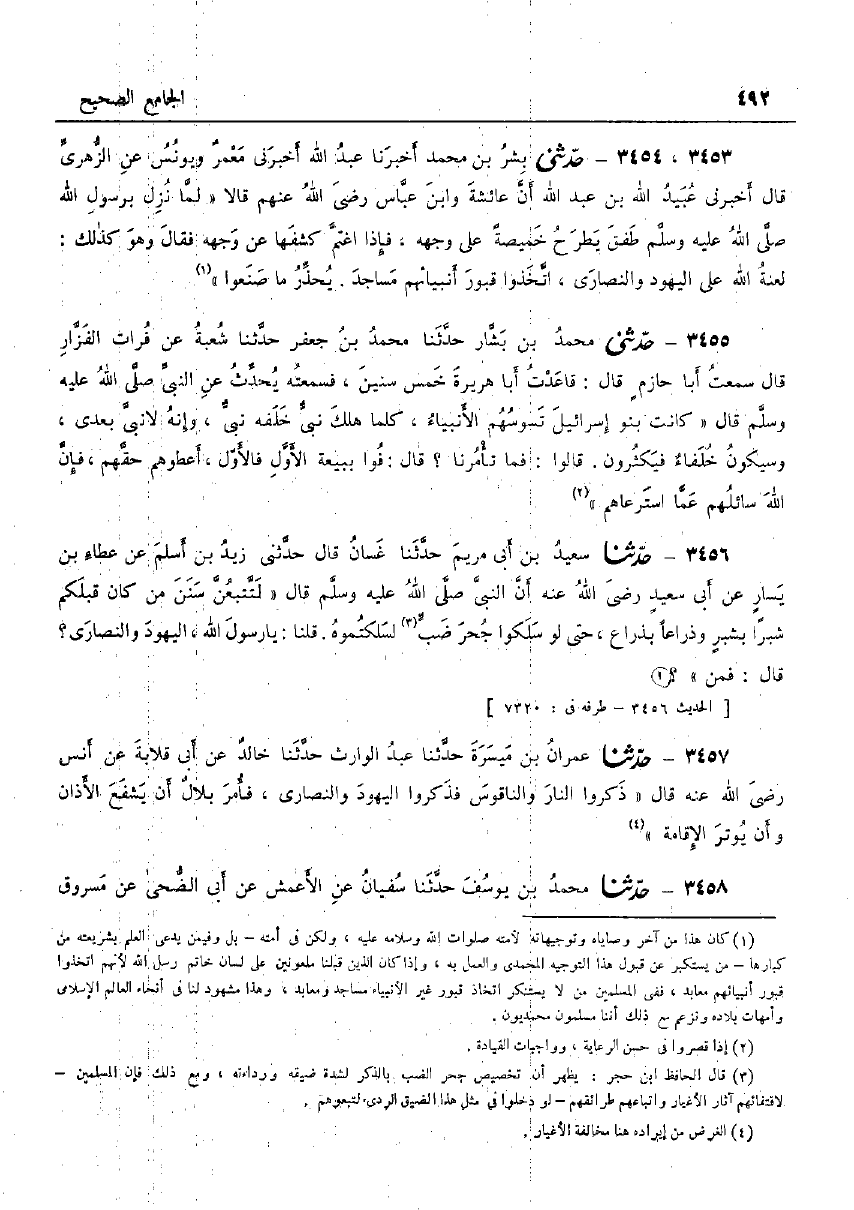 ٤٩٢
الجامع الصحيح
٣٤٥٣ ، ٣٤٥٤ – حدّثنى بِشرُ بن محمد أخبرَنا عبدُ الله أخبرَنى مَعْمرٌ ويونُسُ عنِ الزُّهرىِّ
قال أخبرنى عُبَيدُ الله بن عبد الله أنَّ عائشةَ وابنَ عبّاس رضىَ اللهُ عنهم قالا « لمَّا نُزِلَ برسولِ الله
صلَّى اللهُ عليه وسلَّم طَفقَ يَطرَحُ خَميصةً على وجهه ، فإذا اغتمَّ كشفَها عن وَجهه فقالَ وهوَ كذلك :
لعنةُ الله على اليهود والنصارَى ، اتَّخَذوا قبورَ أنبيائهم مَساجدَ . يُحذِّرُ ما صَنَعوا »(١)
٣٤٥٥ – حدّثنى محمدُ بن بَشّار حدَّثَنا محمدُ بنُ جعفر حدَّثنا شُعبةُ عن فُرات القَزّارِ
قال سمعتُ أبا حازمٍ قال : قاعَدْتُ أبا هريرةَ خَمس سنينَ ، فسمعتُه يُحدِّثُ عنِ النبىِّ صلَّى اللهُ عليه
وسلَّم قال « كانت بنو إسرائيلَ تَسوسُهُم الأنبياءُ ، كلما هلكَ نبىٌّ خلَفه نبىٌّ ، وإنهُ لانبىَّ بعدى ،
وسيكونُ خُلَفاءُ فيَكثُرون . قالوا : فما تأمُرنا ؟ قال : فُوا ببيعة الأَوَّلِ فالأوّل ، أعطوهم حقَّهم ، فإنَّ
اللهَ سائلُهم عَمَّا استرعاهم »(٢)
٣٤٥٦ – حدّثنا سعيدُ بن أبى مريمَ حدَّثَنا غَسانُ قال حدَّثنى زيدُ بن أسلمَ عن عطاءِ بن
يَسارٍ عن أبى سعيدٍ رضىَ اللهُ عنه أنَّ النبىَّ صلَّى اللهُ عليه وسلَّم قال « لَتَتَّبعُنَّ سَنَنَ من كان قبلَكم
شبرًا بشبرٍ وذراعاً بذراع ، حتى لو سَلَكوا جُحرَ ضَبٍّ(٣) لسَلكتُموهُ . قلنا : يارسولَ الله ، اليهودَ والنصارَى؟
قال : فمن » ؟
[ الحديث ٣٤٥٦ – طرفه فى : ٧٣٢٠ ]
٣٤٥٧ – حدّثنا عمرانُ بن مَيسَرَةَ حدَّثنا عبدُ الوارث حدَّثَنا خالدٌ عن أبى قلابةَ عن أنس
رضىَ الله عنه قال « ذَكروا النارَ والناقوسَ فذَكروا اليهودَ والنصارى ، فأُمرَ بلالٌ أن يَشفَعَ الأذان
وأن يُوترَ الإقامة »(٤)
٣٤٥٨ – حدّثنا محمدُ بن يوسُفَ حدَّثَنا سُفيانُ عنِ الأعمش عن أبى الضُّحىٰ عن مَسروق
(١) كان هذا من آخر وصاياه وتوجيهاته لأمته صلوات الله وسلامه عليه ، ولكن فى أمته – بل وفيمن يدعى العلم بشريعته من
كبارها – من يستكبر عن قبول هذا التوجيه المحمدى والعمل به ، وإذا كان الذين قبلنا ملعونين على لسان خاتم رسل الله لأنهم اتخذوا
قبور أنبيائهم معابد ، ففى المسلمين من لا يستنكر اتخاذ قبور غير الأنبياء مساجد ومعابد ، وهذا مشهود لنا فى أنحاء العالم الإسلامى
وأمهات بلاده ونزعم مع ذلك أننا مسلمون محمديون .
(٢) إذا قصروا فى حسن الرعاية ، وواجبات القيادة .
(٣) قال الحافظ ابن حجر : يظهر أن تخصيص جحر الضب بالذكر لشدة ضيقه ورداءته ، ومع ذلك فإن المسلمين –
لاقتفائهم آثار الأغيار واتباعهم طرائقهم – لو دخلوا فى مثل هذا الضيق الردىء لتبعوهم .
(٤) الغرض من إيراده هنا مخالفة الأغيار .